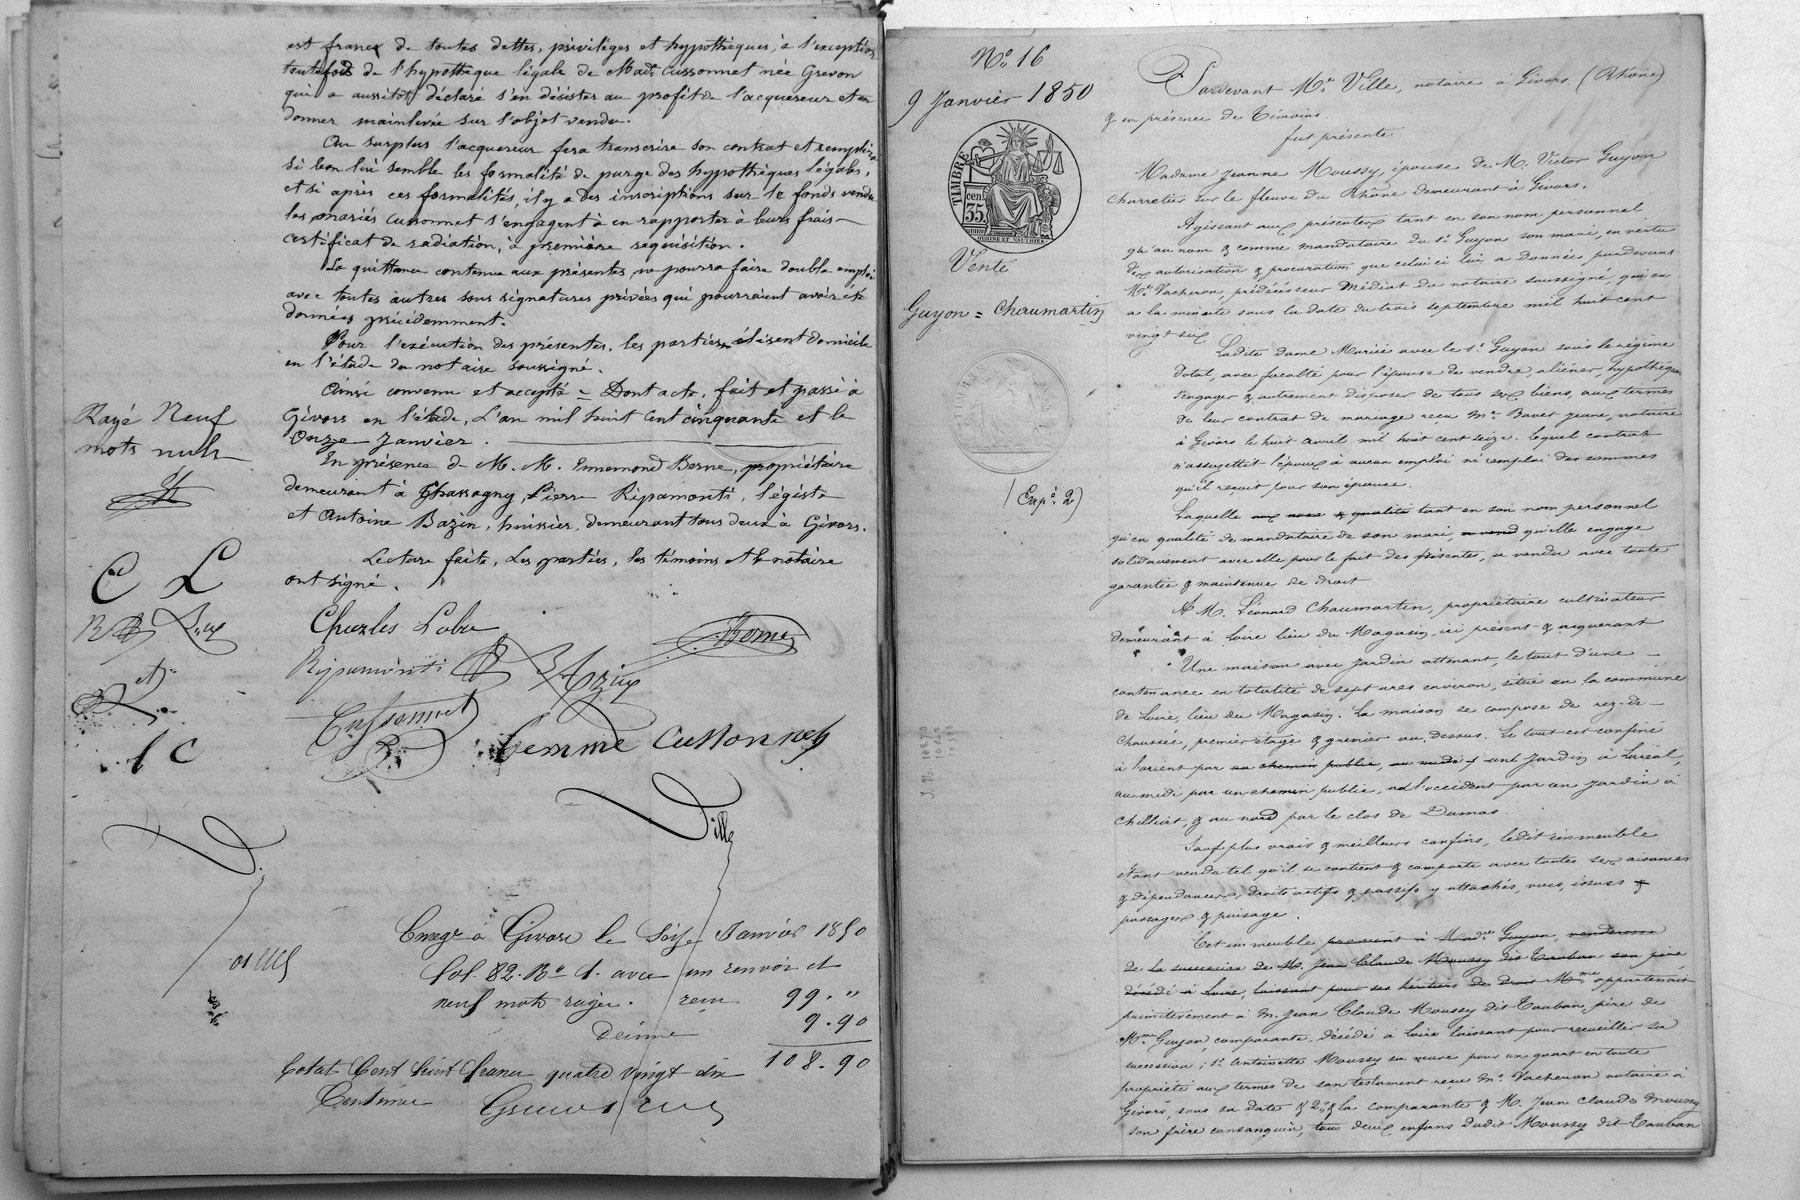 est franc de toutes dettes, privilèges et hypothèques, à l'exception
toutefois de l'hypothèque légale de Made Cussonnet née Grevon
qui a aussitôt déclaré s'en désister au profit de l'acquereur et en
donner mainlevée sur l'objet vendu.
Au surplus l'acquereur fera transcrire son contrat et remplira
si bon lui semble les formalité de purge des hypothèques légales,
et si après ces formalités, il y a des inscriptions sur le fonds vendu
les mariés Cussonnet s'engagent à en rapporter à leurs frais
certificat de radiation, à première requisition.
La quittance contenue aux présentes, ne pourra faire double emploi
avec toutes autres sous signatures privées qui pourraient avoir été
données précédemment.
Pour l'exécution des présentes, les parties élisent domicile
en l'étude du notaire soussigné.
Ainsi convenu et accepté = Dont acte, fait et passé à
Givors en l'étude, L'an mil huit cent cinquante et le
Onze Janvier.
En présence de M. M. Ennemond Berne, propriétaire
demeurant à Chassagny, Pierre Ripamonti, légiste
et Antoine Bazin, huissier, demeurant tous deux à Givors.
Lecture faite, Les parties, les témoins et le notaire
ont signé.
Rayé Neuf
mots nuls
C L
Charles Labe
Berne
Ripamonti
Cussonnet
femme Cussonnet
l C
Ville
Enregé à Givors le Seize Janvier 1850
fol. 82. Ro 1. avec un renvoi et
neuf mots rayés. reçu 99. "
Décime 9.90
108.90
Total Cent huit francs quatre vingt dix
Centimes
No 16
9 Janvier 1850
TIMBRE
35 cen
Vente
Guyon = Chaumartin
(Expé 2)
Pardevant Me Ville, notaire à Givors (Rhône)
& en présence de Témoins.
fut présente
Madame Jeanne Moussy, épouse de M. Victor Guyon
charretier sur le fleuve du Rhône demeurant à Givors.
Agissant aux présentes tant en son nom personnel
qu'au nom & comme mandataire du sr Guyon son mari, en vertu
des autorisation & procuration que celui ci lui a données pardevant
Me Vacheron, prédécesseur médiat du notaire soussigné, qui en
a la minute sous la date du trois septembre mil huit cent
vingt six
Ladite dame Mariée avec le sr Guyon sous le régime
Dotal, avec faculté pour l'épouse de vendre, aliéner, hypothéquer
s'engager & autrement disposer de tous ses biens, aux termes
de leur contrat de mariage reçu Me Bovet jeune, notaire
à Givors le huit avril mil huit cent seize. Lequel contrat
n'assujettit l'époux à aucun emploi ni remploi des sommes
qu'il reçoit pour son épouse.
Laquelle aux noms & qualités tant en son nom personnel
qu'en qualité de mandataire de son mari, a vend qu'elle engage
solidairement avec elle pour le fait des présentes, a vendu avec toute
garantie & maintenue de droit
A M. Léonard Chaumartin, propriétaire cultivateur
demeurant à Loire lieu du Magasin, ici présent & acquerant
Une maison avec Jardin attenant, le tout d'une
contenance en totalité de sept ares environ, situé en la commune
de Loire, lieu du Magasin. La maison se compose de rez-de-
chaussée, premier étage & grenier au dessus. Le tout est confiné
à l'orient par un chemin public, au midi / un Jardin à Laréal,
au midi par un chemin public, à l'occident par un Jardin à
Chilliat, & au nord par le clos de Dumas.
Sauf plus vrais & meilleurs confins, ledit immeuble
étant vendu tel qu'il se contient & comporte avec toutes ses aisances
& dépendances, droits actifs & passifs y attachés, vues, issues &
passages & puisage.
Cet immeuble provient à Made Guyon, venderesse
de la succession de M. Jean Claude Moussy dit Tauban son père
décédé à Loire, laissant pour ses héritiers de droit Mme appartenait
primitivement à M. Jean Claude Moussy dit Tauban, père de
Mme Guyon, comparante, décédé à Loire laissant pour recueillir sa
succession; 1o Antoinette Moussy sa veuve pour un quart en toute
propriété aux termes de son testament reçu Me Vacheron notaire à
Givors, sous sa date & 2o & la comparante & M. Jean Claude Moussy
son frère consanguin, tous deux enfans dudit Moussy dit Tauban